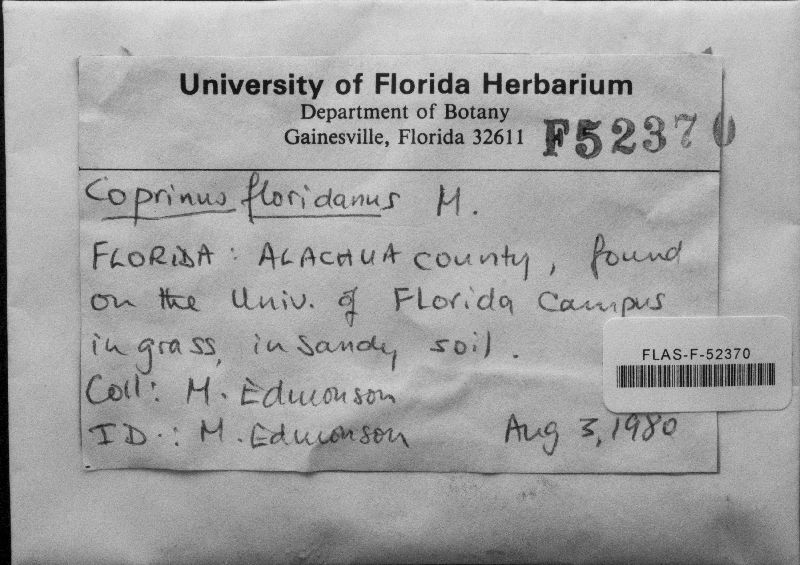 University of Florida Herbarium
Department of Botany
Gainesville, Florida 32611
F52370
Coprinus floridanus M.
FLORIDA: ALACHUA county, found
on the Univ. of Florida Campus
in grass, in sandy soil.
Coll: M. Edmonson
ID.: M. Edmonson Aug 3, 1980
FLAS-F-52370